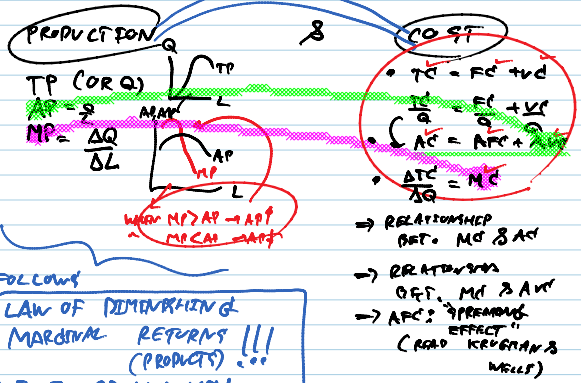 PRODUCTION & COST
Q
TP
L
TP (OR Q)
AP = Q/L
MP = ΔQ/ΔL
AP, MP
AP
MP
L
WHEN MP > AP → AP↑
" MP < AP → AP↓
• TC = FC + VC
TC/Q = FC/Q + VC/Q
• AC = AFC + AVC
• ΔTC/ΔQ = MC
⇒ RELATIONSHIP
BET. MC & AC
→ RELATIONSHIP
BET. MC & AVC
→ AFC: "SPREADING
EFFECT"
(READ KRUGMAN &
WELLS)
FOLLOWS
LAW OF DIMINISHING
MARGINAL RETURNS !!!
(PRODUCTS)